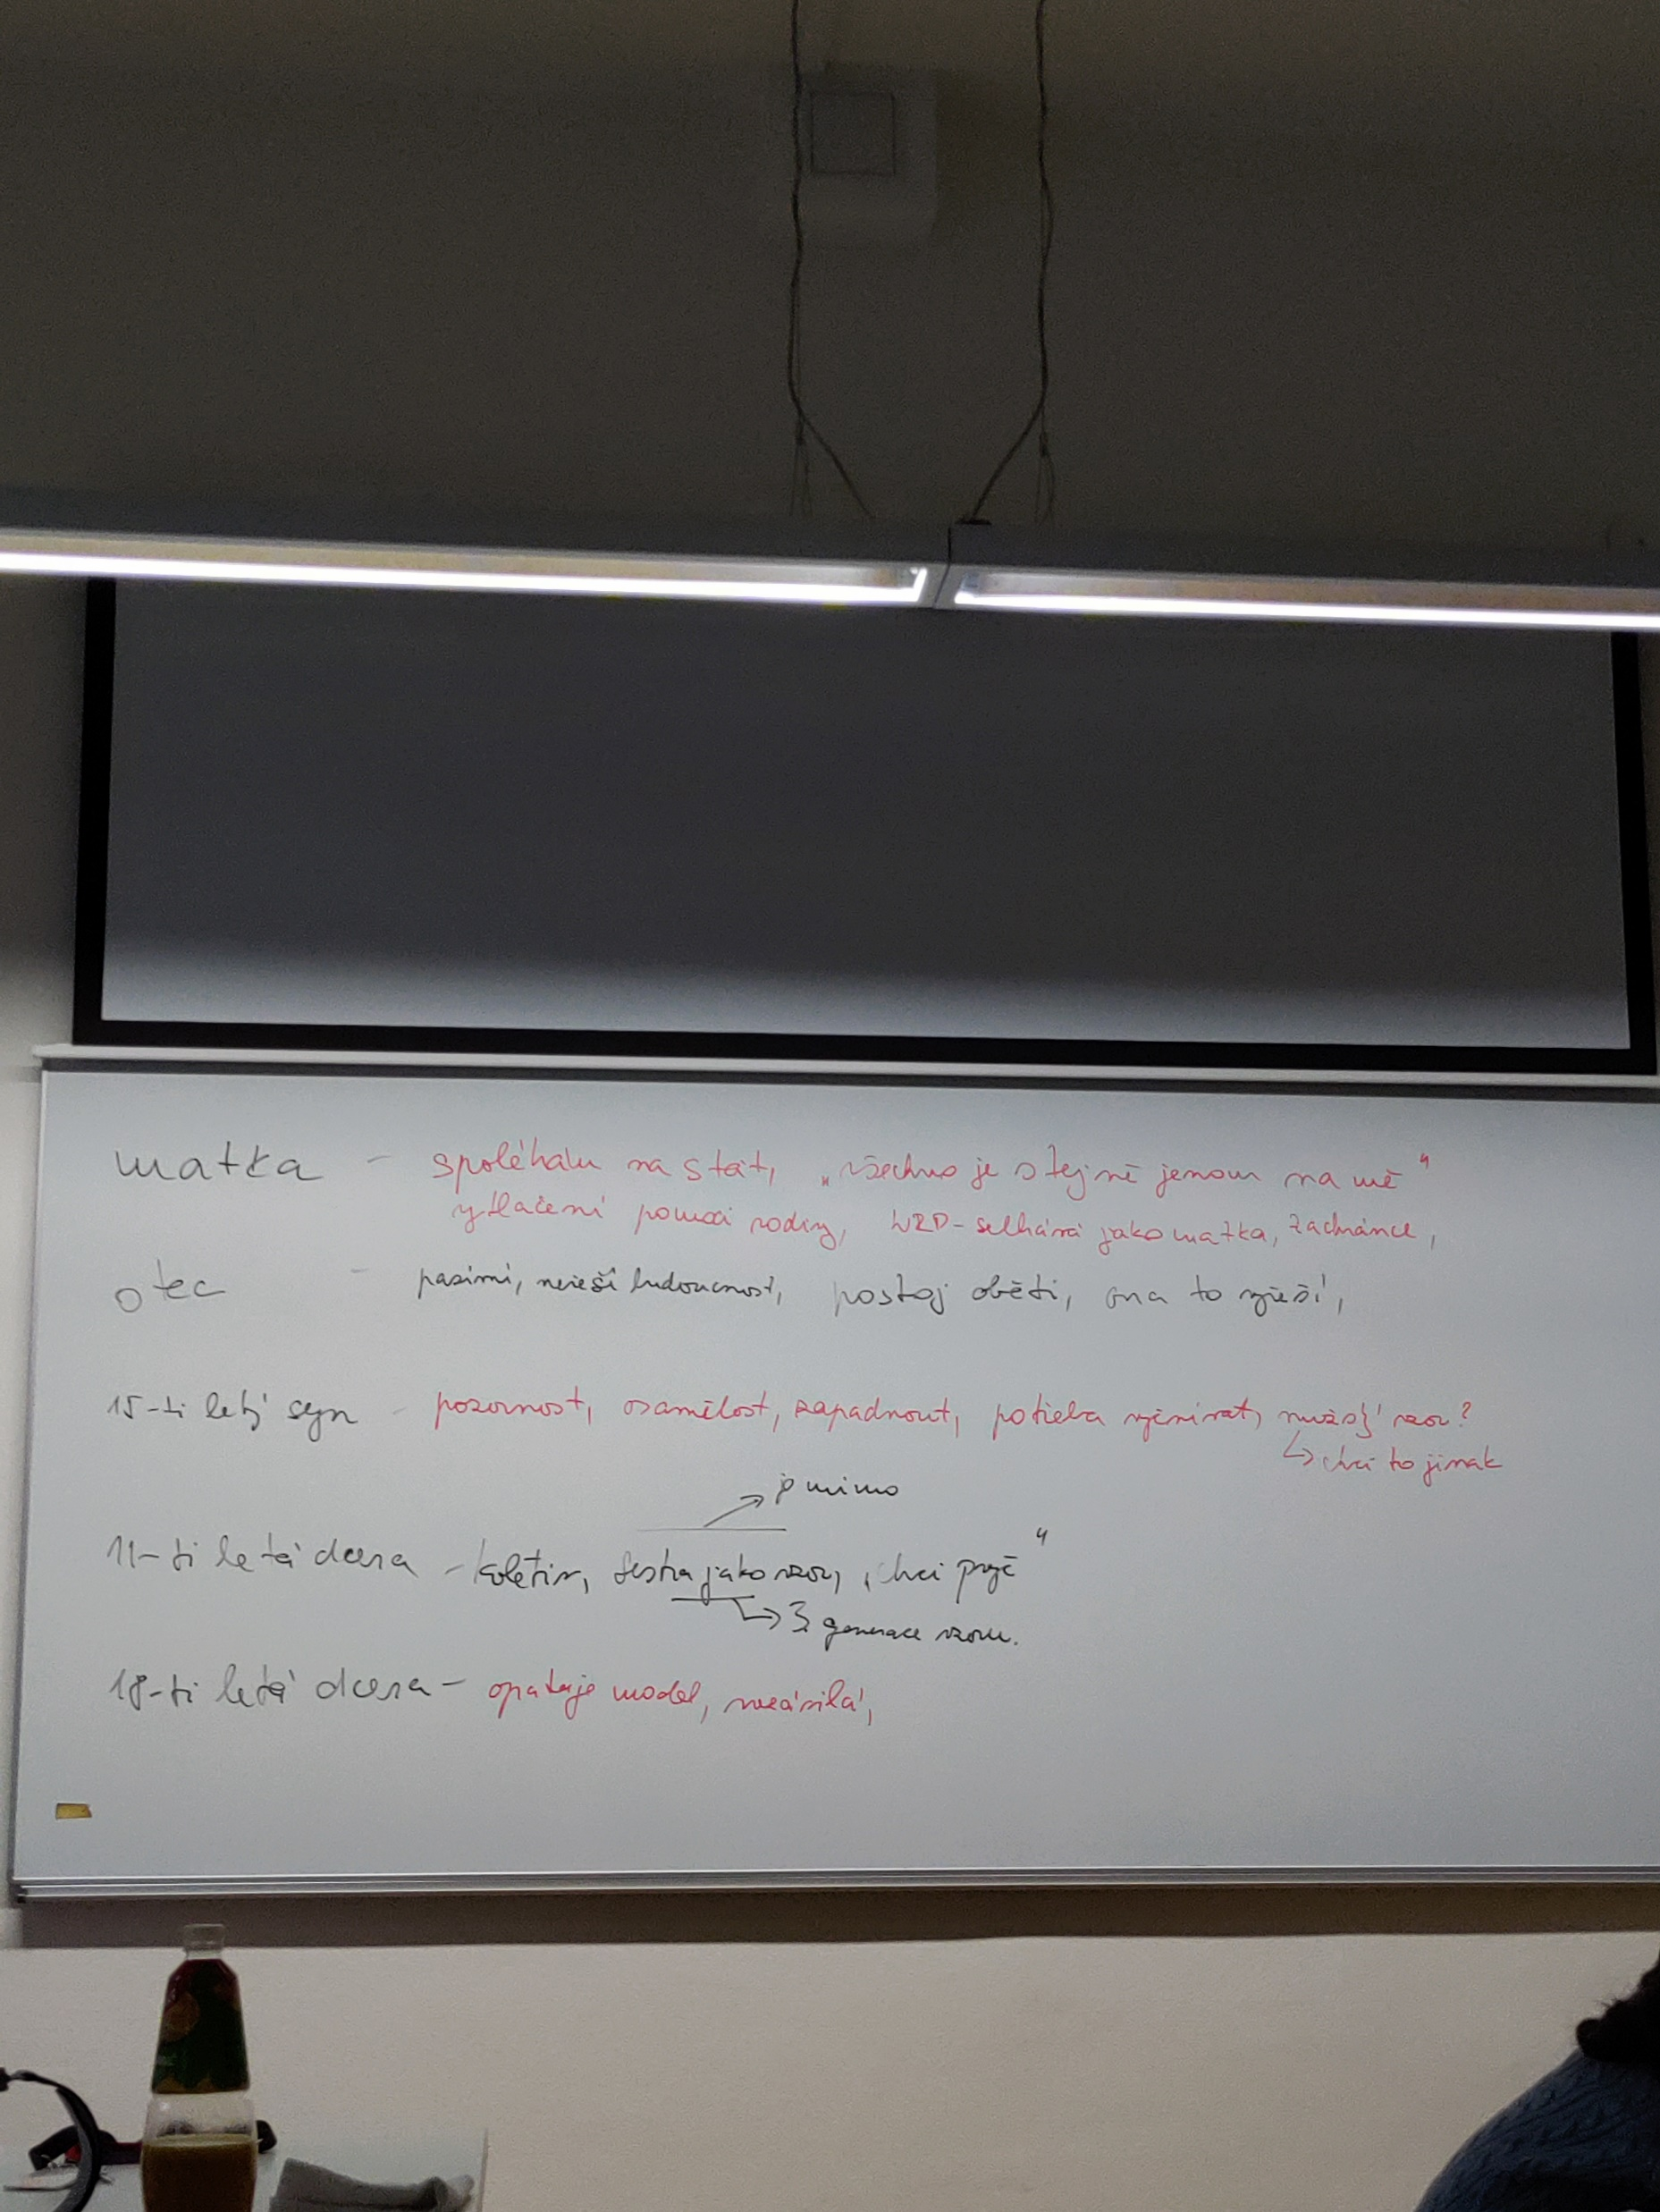 matka - spoléhání na stát, „všechno je stejně jenom na mě"
vytlačení pomoci rodiny, selhává jako matka, zachránce,
otec - pasivní, neřeší budoucnost, postoj oběti, ona to vyřeší,
15-ti letý syn - pozornost, osamělost, zapadnout, potřeba vyčnívat, mužský vzor?
↳ chci to jinak
je mimo
11-ti letá dcera - sestra jako vzor, „chci pryč"
↳ 3. generace vzoru.
18-ti letá dcera - opakuje model, nezávislá,